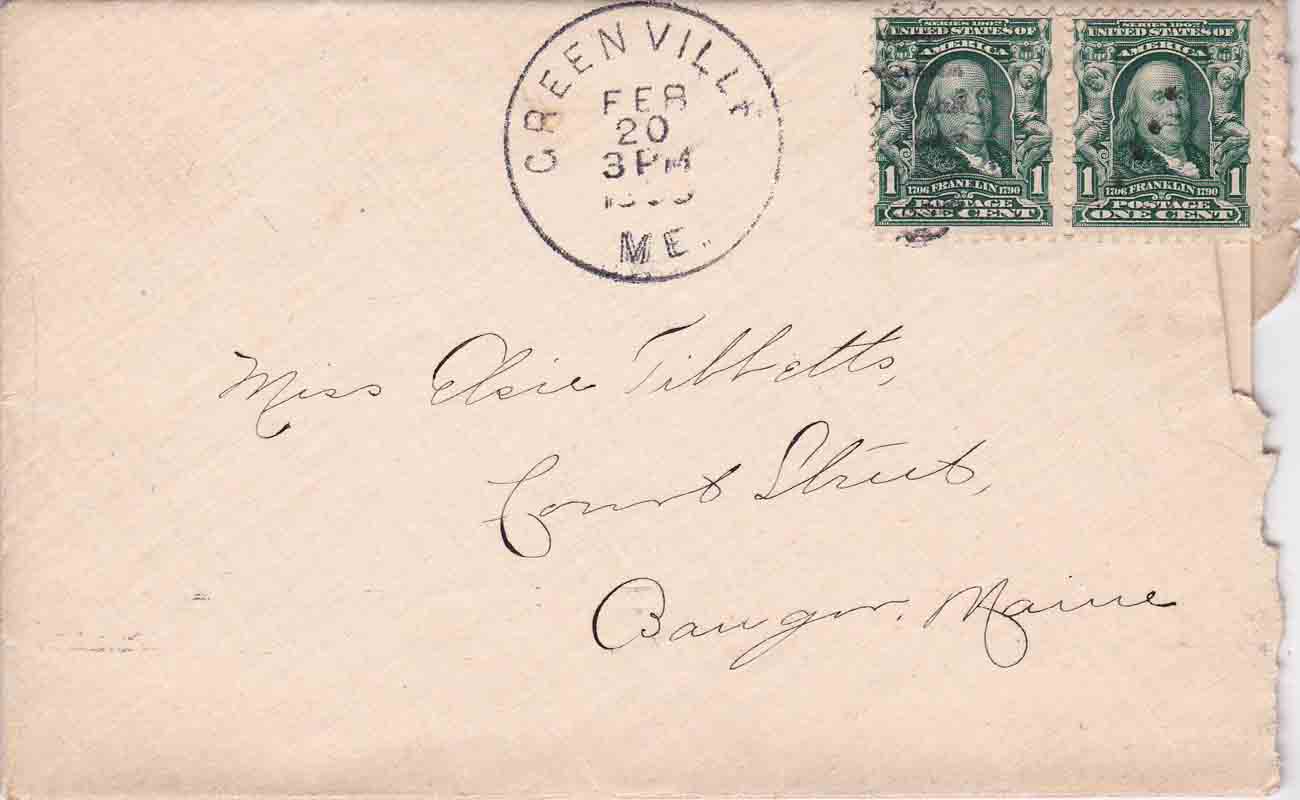 GREENVILLE
FEB
20
3 PM
ME.
SERIES 1902
UNITED STATES OF
AMERICA
1 1706 FRANKLIN 1790 1
POSTAGE
ONE CENT
SERIES 1902
UNITED STATES OF
AMERICA
1 1706 FRANKLIN 1790 1
POSTAGE
ONE CENT
Miss Elsie Tibbetts,
Court Street,
Bangor. Maine